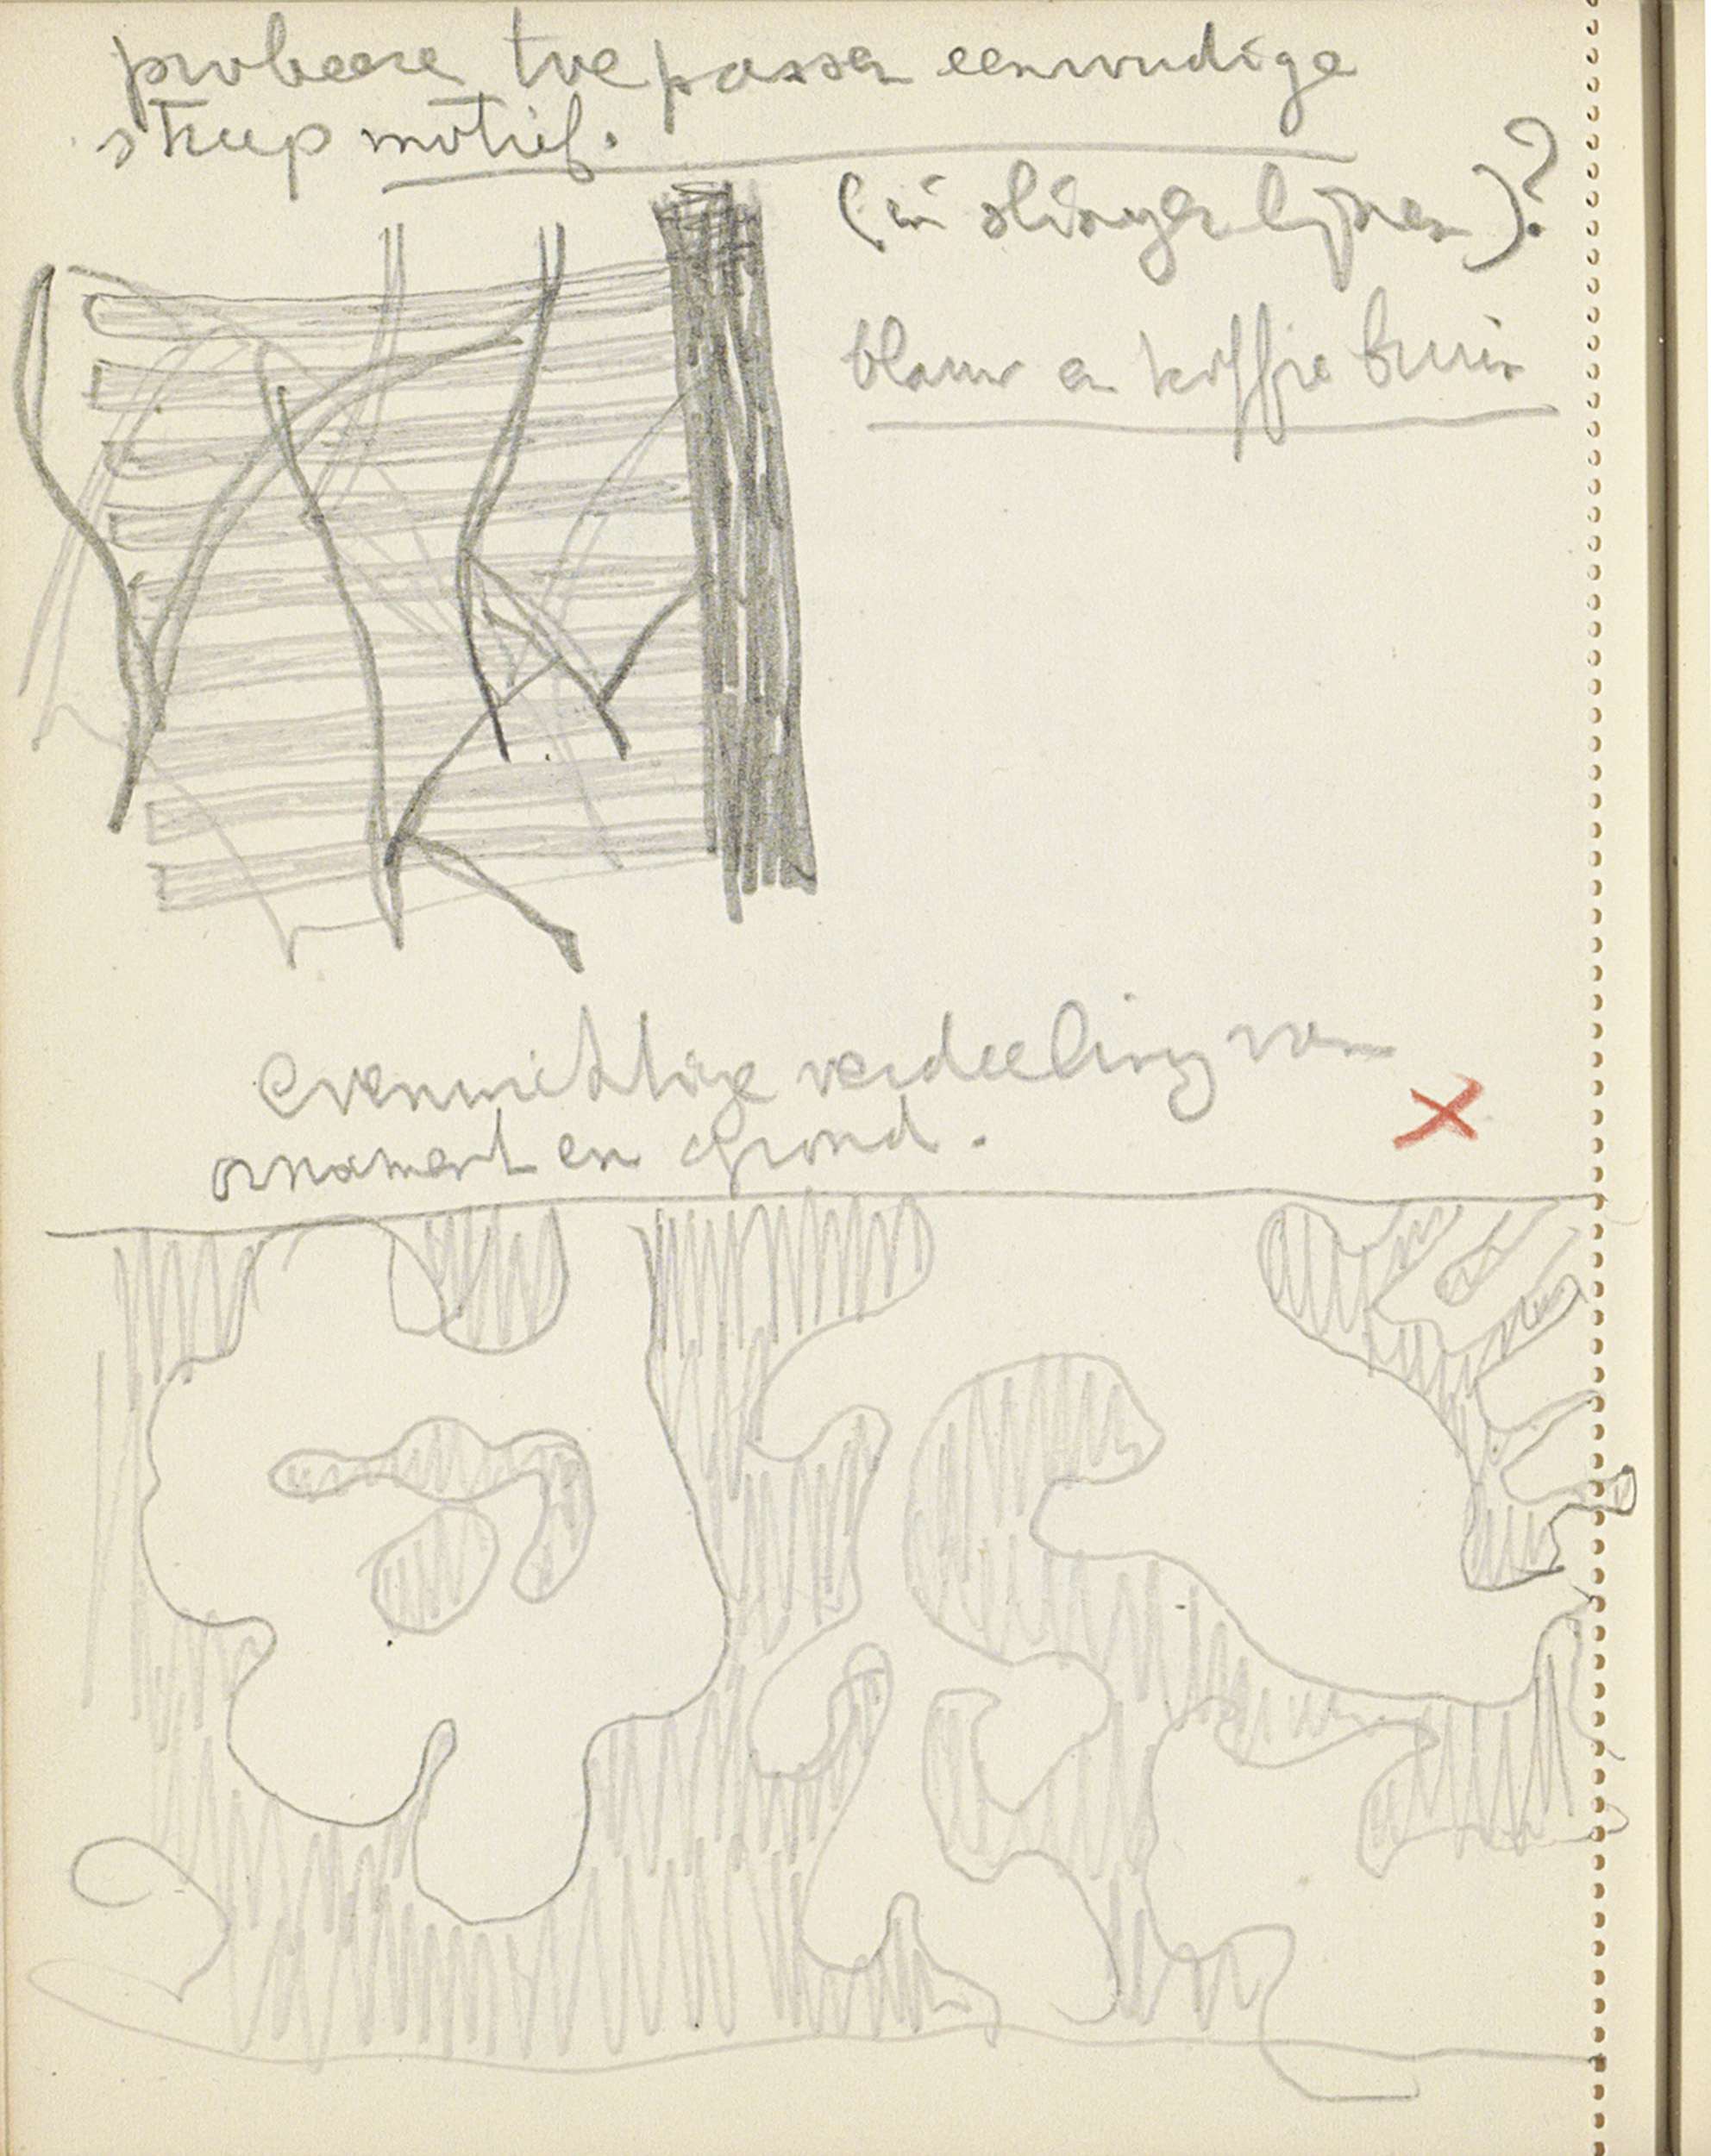 probeere toepassen eenvoudige
streep motief.
(in slinger lijnen)?
blauw en koffie bruin
evenwichtige verdeeling van
ornament en grond.